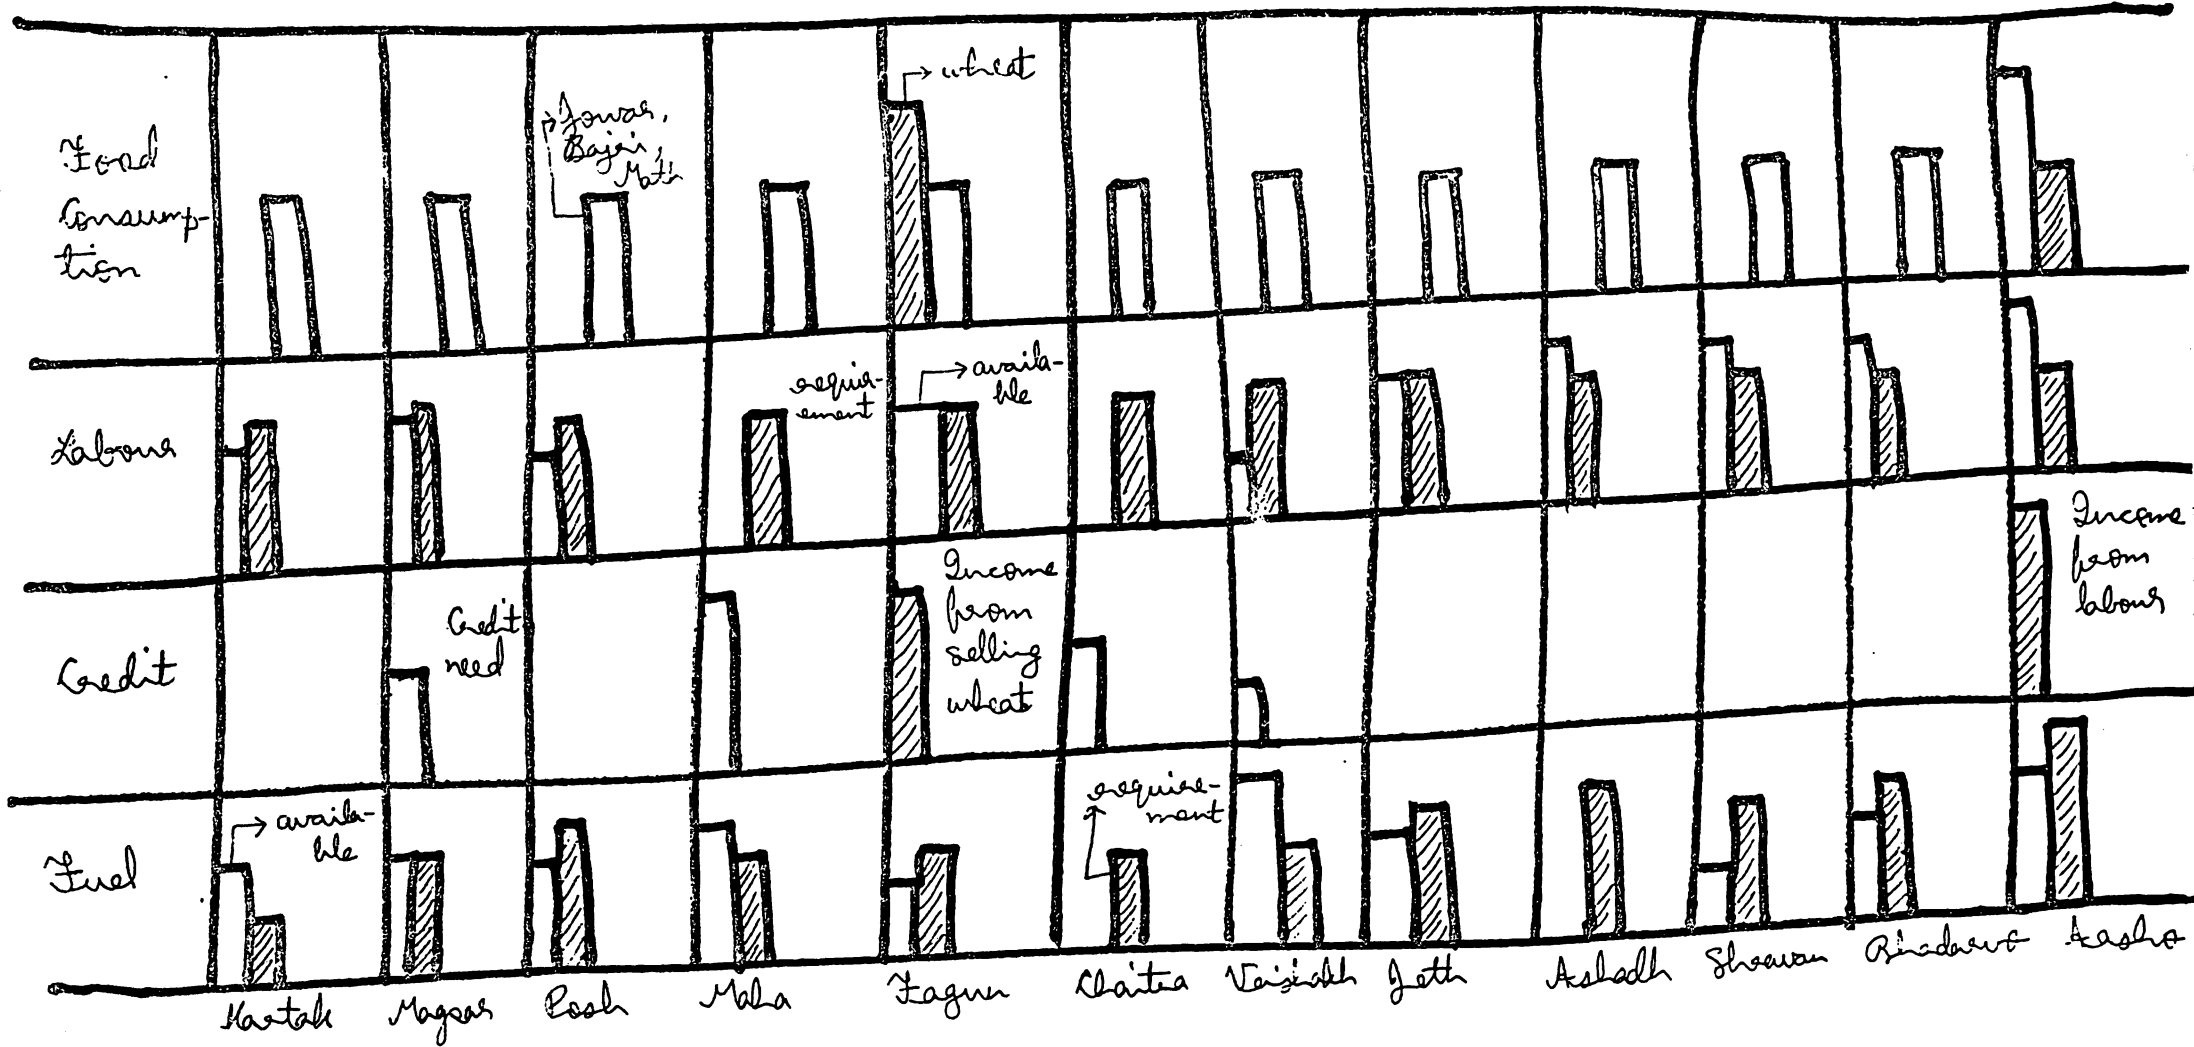 Food
Consump-
tion
Jowar,
Bajri,
Math
wheat
Labour
requir-
ement
availa-
ble
Credit
Credit
need
Income
from
selling
wheat
Income
from
labour
Fuel
availa-
ble
require-
ment
Kartak
Magsar
Posh
Maha
Fagun
Chaitra
Vaisakh
Jeth
Ashadh
Shravan
Bhadarvo
Aasho